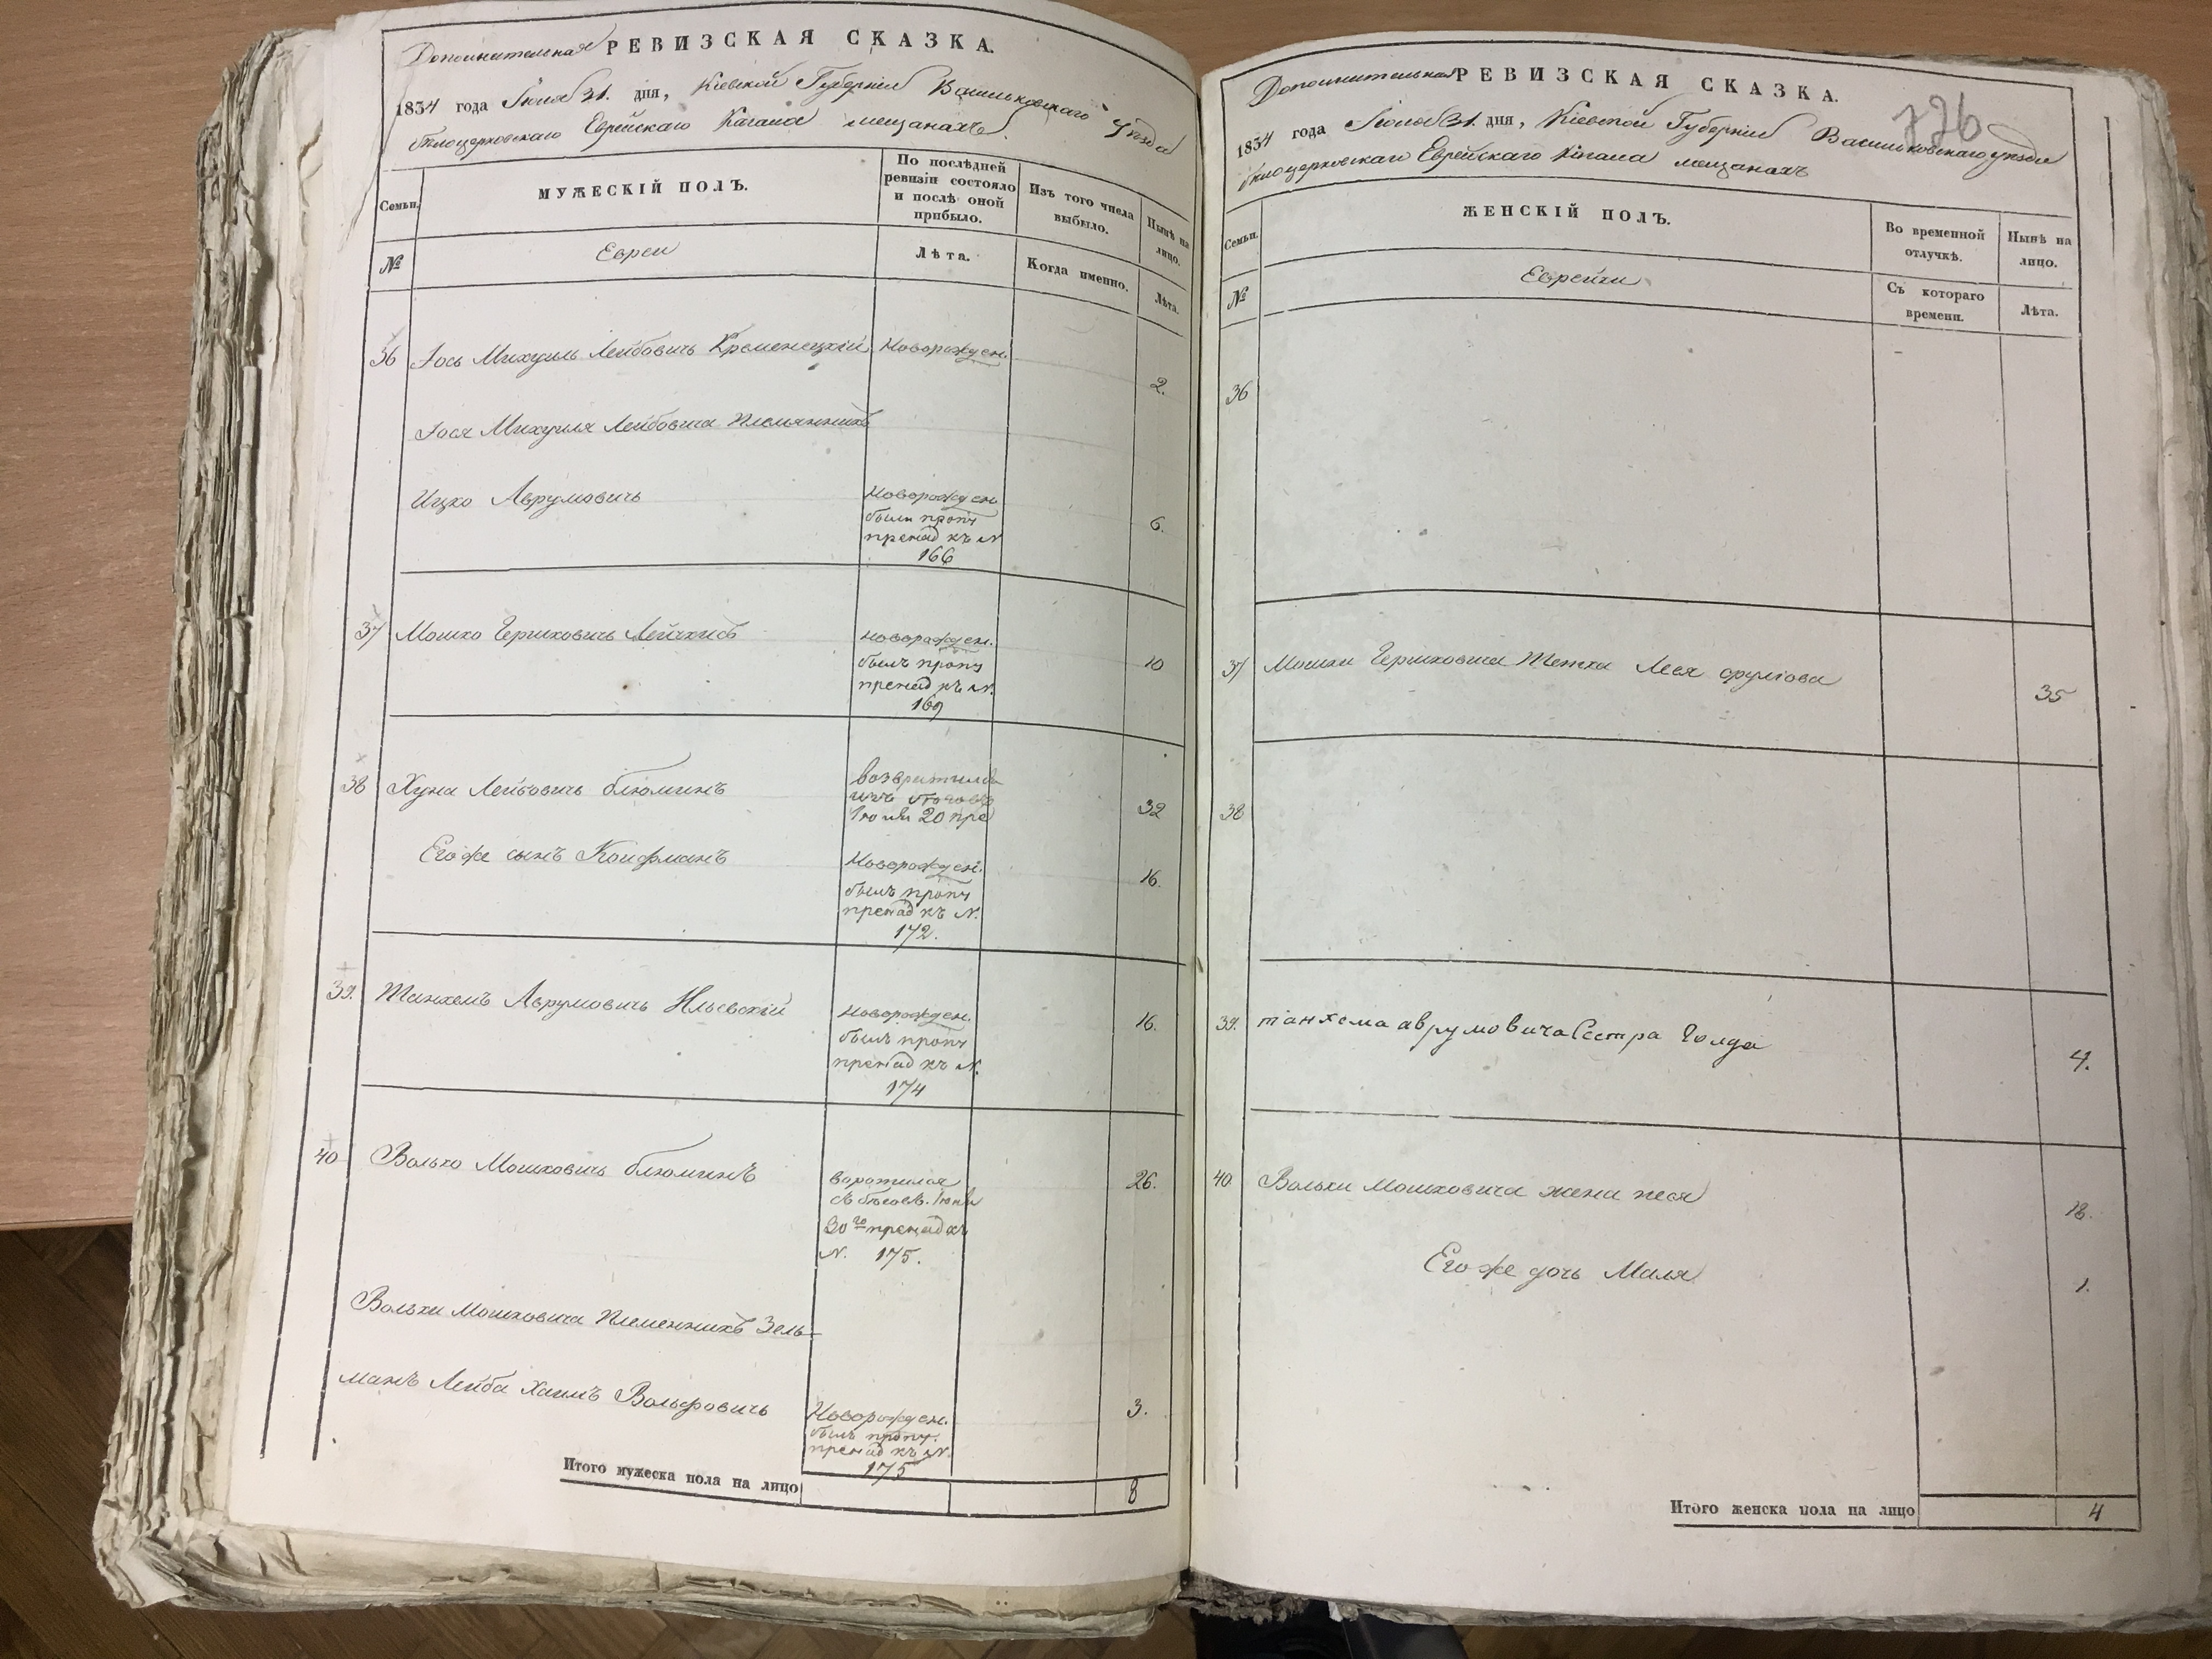 Дополнительная РЕВИЗСКАЯ СКАЗКА.
1834 года Іюля 31. дня, Кіевской Губерніи Васильковскаго Уезда
бѣлоцерковскаго Еврейскаго Кагала мещанахъ.
Семьи.
МУЖЕСКІЙ ПОЛЪ.
По послѣдней ревизіи состояло и послѣ оной прибыло.
Изъ того числа выбыло.
Нынѣ на лицо.
№
Евреи
Лѣта.
Когда именно.
Лѣта.
36 Іось Михуиль Лейбовичь Кременецкій Новорожден. 2.
Іося Михуиля Лейбовича племянникъ
Ицко Аврумовичь Новорожден. 6.
были пропу
принад къ N
166
37 Мошко Гершковичь новорожден. 10
былъ пропу
принад къ N.
169
38 Хуна Лейбовичь блюминъ возвратился 32
изъ
Іюля 20 при
Его же сынъ Койфманъ Новорожден. 16.
былъ пропу
принад къ N.
172.
39. Танхемъ Аврумовичь Новорожден. 16.
былъ пропу
принад къ N.
174
40 Волько Мошковичь блюминъ воротился 26.
съ бѣговъ. Іюня
30го принад къ
N. 175.
Вольки Мошковича племенникъ Зель-
манъ Лейба Хаимъ Вольфовичь Новорожден. 3.
былъ пропу.
принад къ N.
175
Итого мужеска пола на лицо 8
Дополнительная РЕВИЗСКАЯ СКАЗКА.
776
1834 года Іюля 31. дня, Кіевской Губерніи Васильковскаго уезда
бѣлоцерковскаго Еврейскаго Кагала мещанахъ
Семьи.
ЖЕНСКІЙ ПОЛЪ.
Во временной отлучкѣ.
Нынѣ на лицо.
№
Еврейки
Съ котораго времени.
Лѣта.
36
37 Мошки Гершковича тетка Лея 35
38
39. танхема аврумовича Сестра Голда 4.
40. Вольки Мошковича жена песя 18.
Его же дочь Маля 1.
Итого женска пола на лицо 4